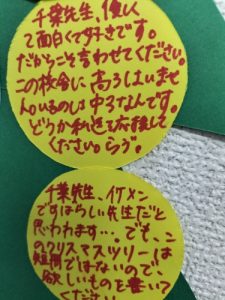 千葉先生、優しく
て面白くて好きです。
だからこそ言わせてください。
この教会に高ろはいませ
ん。いるのは中ろなんです。
どうか私達を応援して
ください。らう。
千葉先生、イケメン
ですばらしい先生だと
思われます…。でも、こ
のクリスマスツリーは
短冊ではないので、
欲しいものを書いて
ください